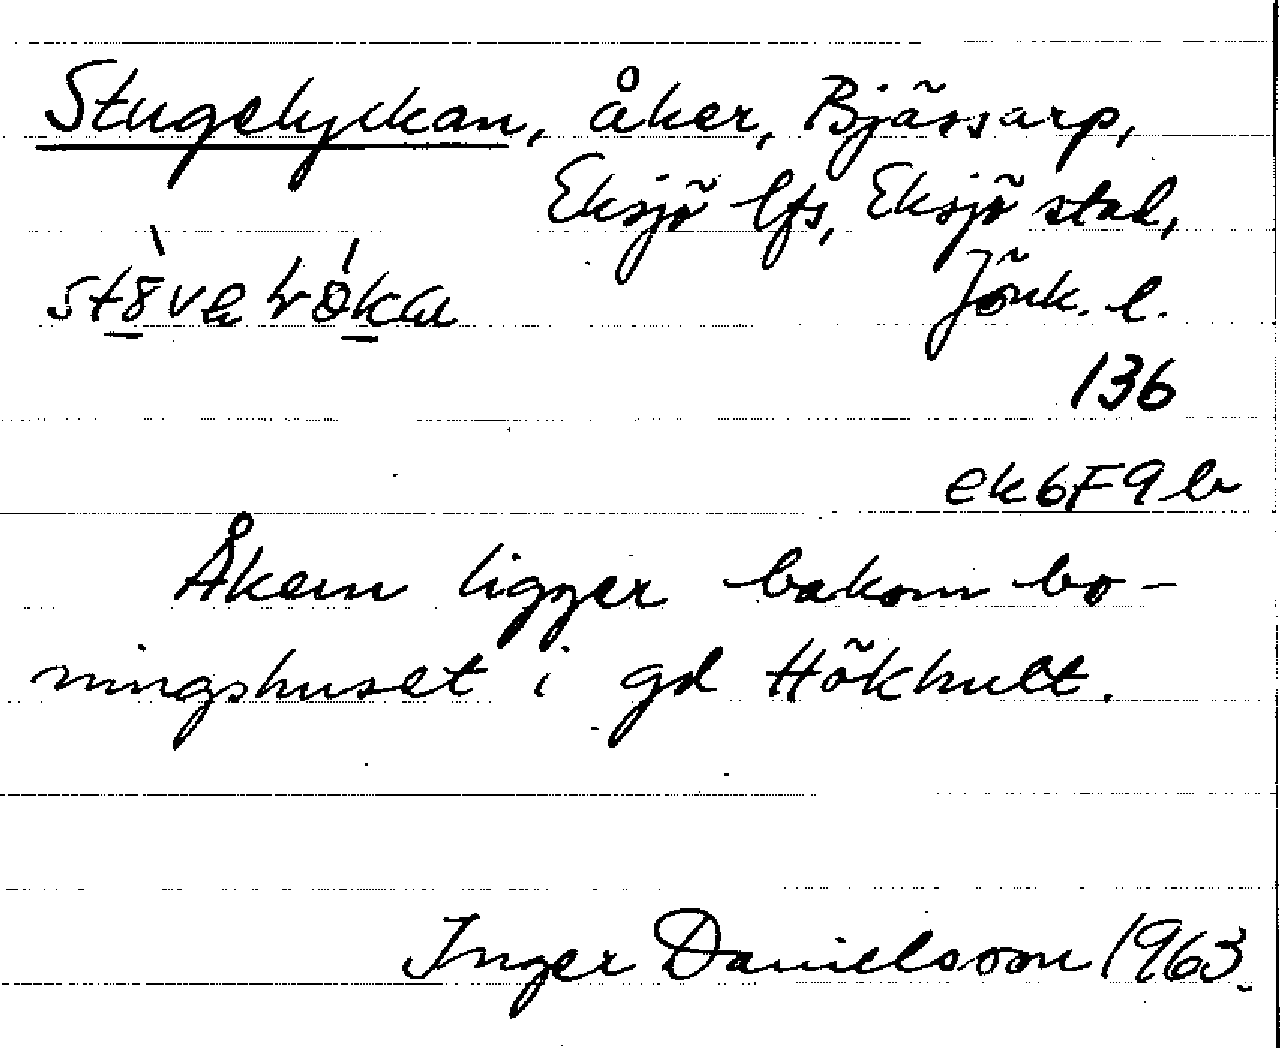 Stugelyckan, åker, Bjässarp,
Eksjö lfs, Eksjö stad,
Jönk. l.
136
ek6F9b
Åkern ligger bakom bo-
ningshuset i gd Hökhult.
Inger Danielsson 1963.